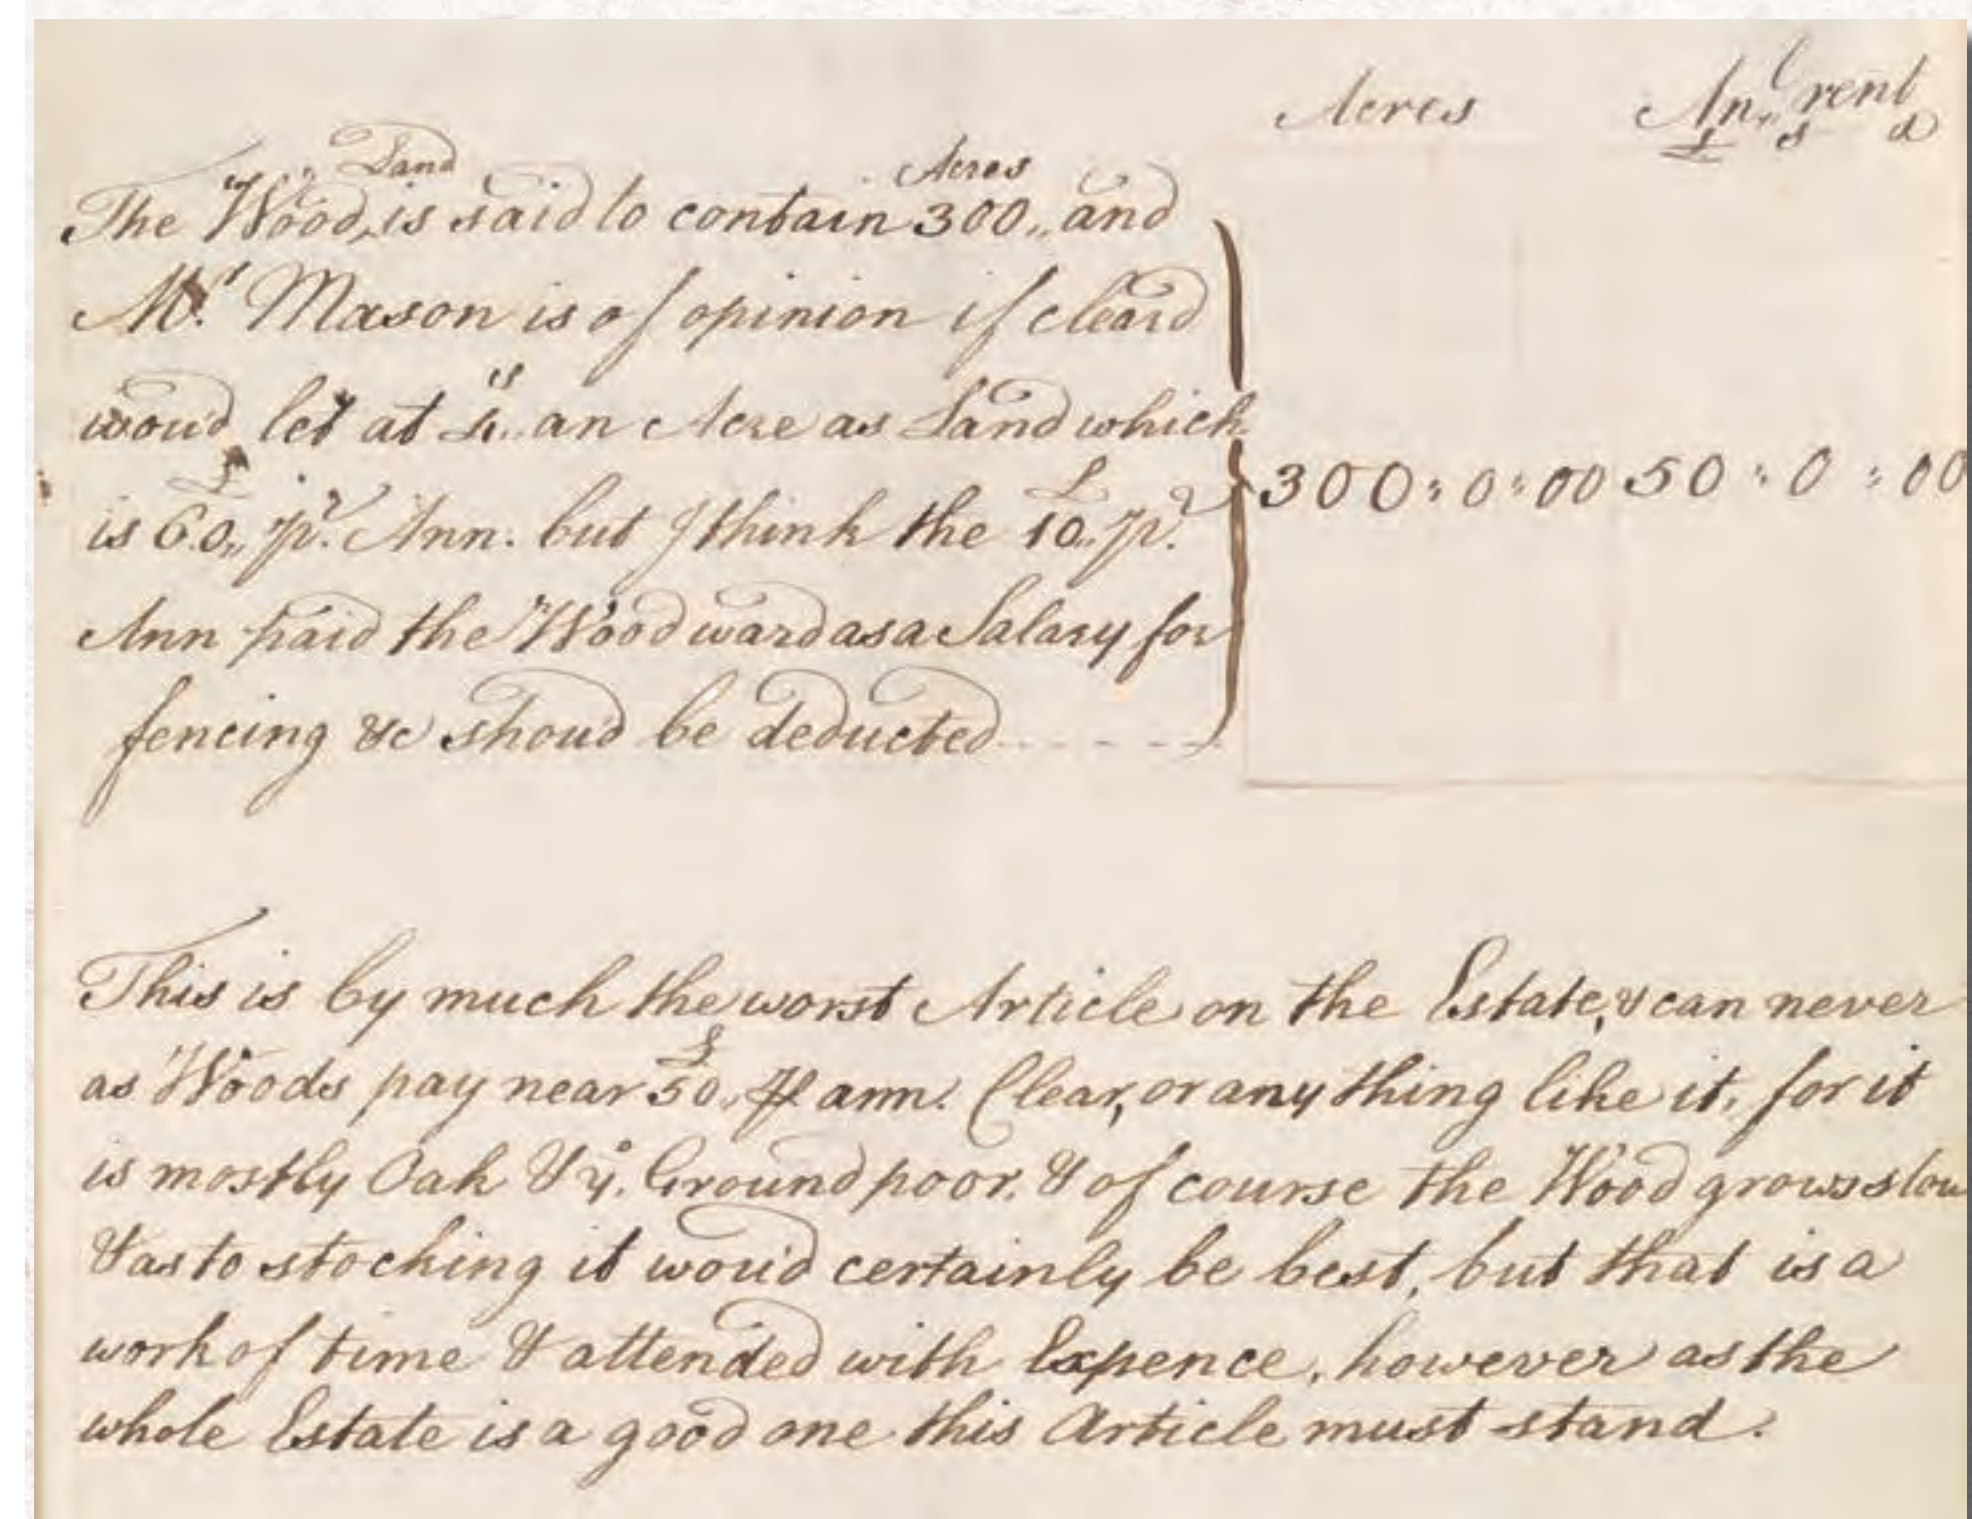 Acres Anl. rent
£ s d
Land Acres
The Wood, is said to contain 300,, and
Mr. Mason is of opinion if cleard
s
woud let at 4,, an Acre as Land which
£ £
is 60,, pr. Ann. but I think the 10,, pr.
300 : 0 : 00 50 : 0 : 00
Ann paid the Woodward as a Salary for
fencing &c shoud be deducted
This is by much the worst Article on the Estate, & can never
£
as Woods pay near 50,, ⅌ ann. Clear, or any thing like it, for it
is mostly Oak & ye. Ground poor, & of course the Wood grows slow
& as to stocking it woud certainly be best, but that is a
work of time & attended with Expence, however as the
whole Estate is a good one this Article must stand.